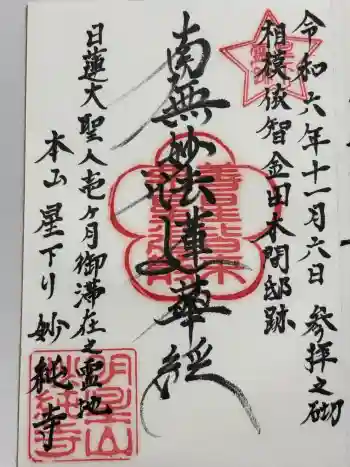 令和六年十一月六日 参拝之砌
相模依智 金田本間邸跡
南無妙法蓮華経
日蓮大聖人壱ヶ月御滞在之霊地
本山 星下り 妙純寺
明星山
妙純寺